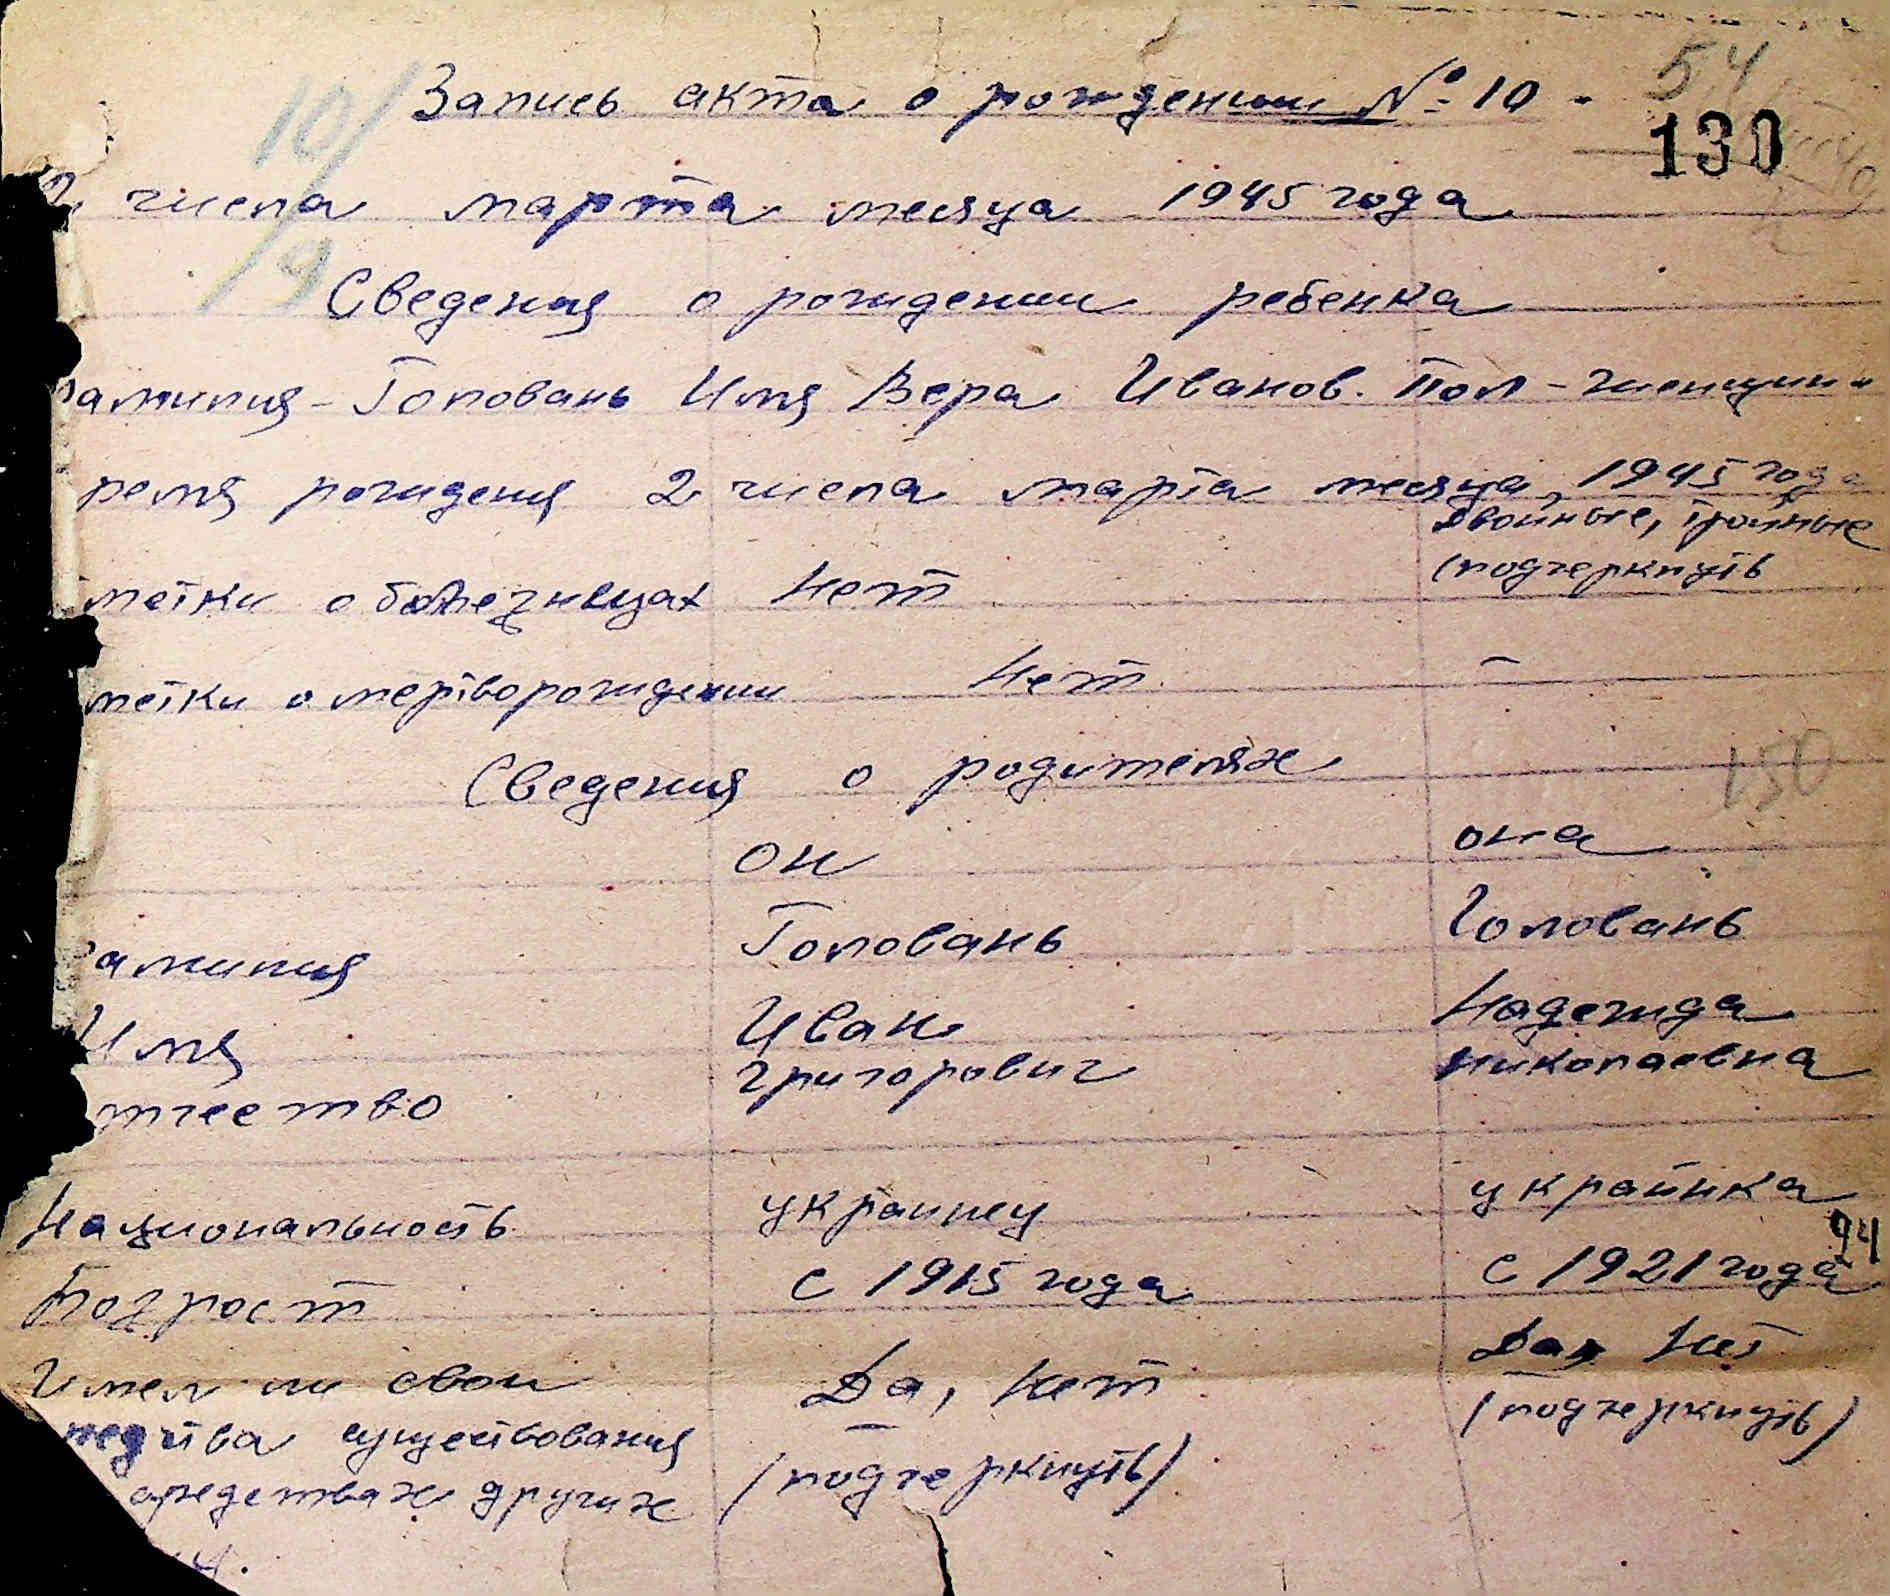 Запись акта о рождении № 10
54
130
10/9
числа марта месяца 1945 года
Сведения о рождении ребенка
амилия - Головань Имя Вера Иванов. Пол - женщин
ремя рождения 2 числа марта месяца, 1945 года
двойные, тройные
(подчеркнуть
метки о нет
метки о мертворождении нет -
Сведения о родителях
150
он она
амилия Головань Головань
Имя Иван Надежда
тчество григорович николаевна
Национальность украинец украинка
94
Возраст с 1915 года с 1921 года
Имел ли свои Да, нет Да, нет
редства существования (подчеркнуть) (подчеркнуть)
средствах других